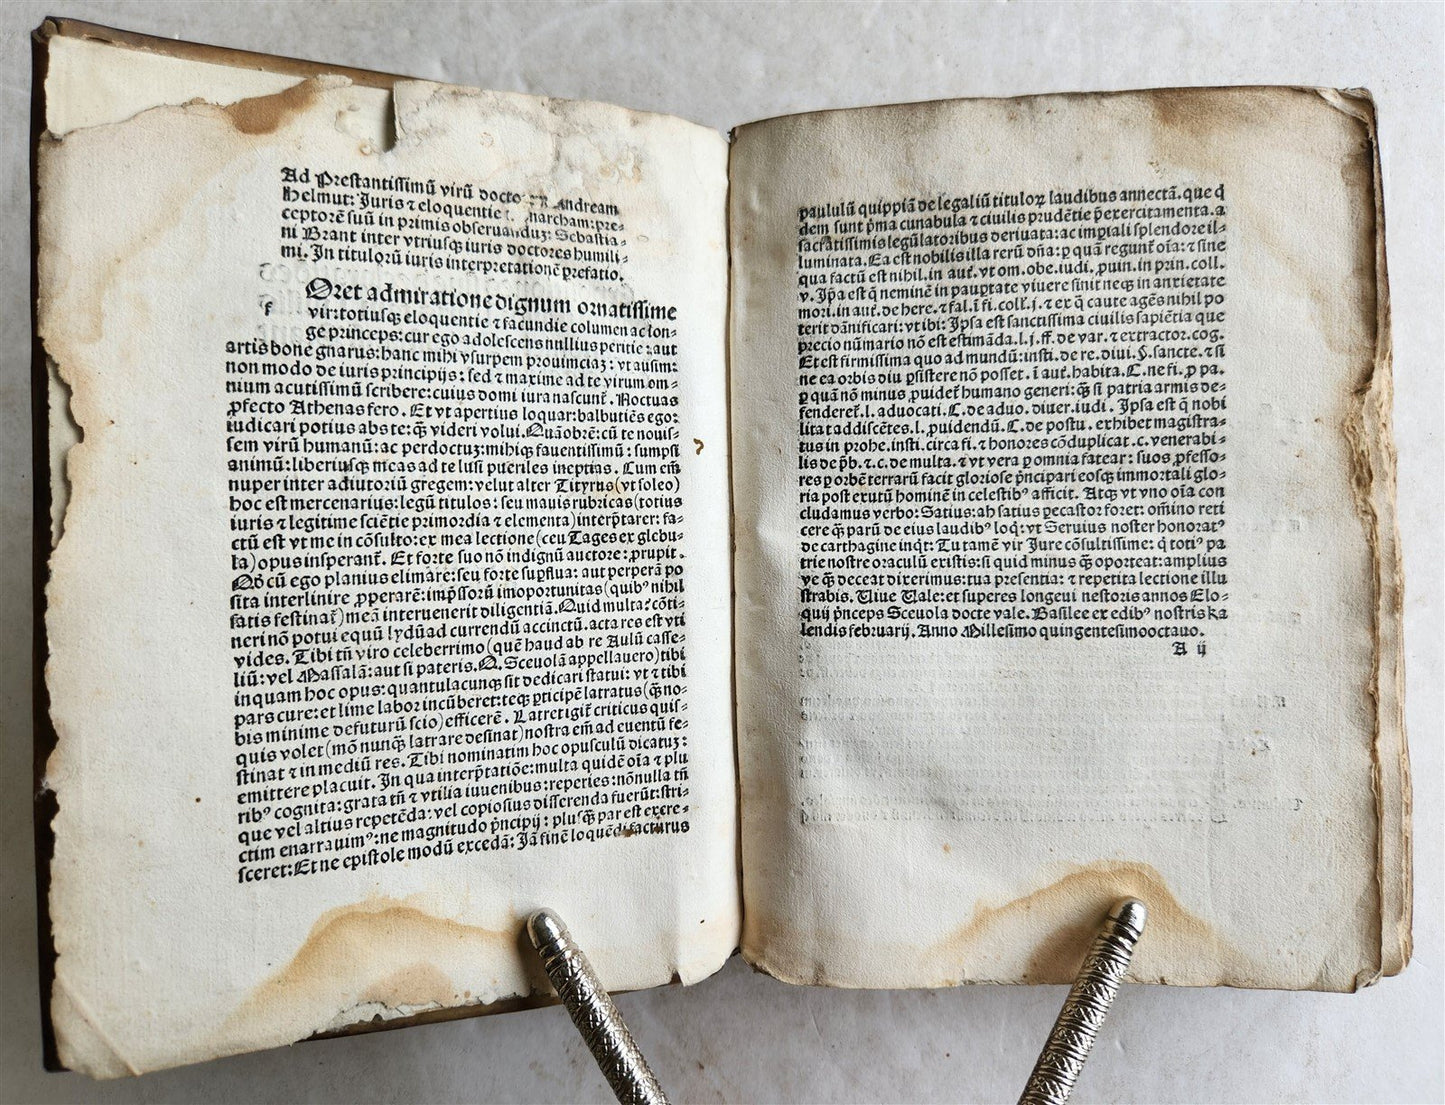 Ad Prestantissimū virū docto Andream
Helmut: Juris ⁊ eloquentie narcham: pre-
ceptorē suū in primis obseruanduꝫ: Sebastia-
ni Brant inter vtriusqꝫ iuris doctores humili-
mi. In titulorū iuris interpretationē prefatio.
f Oret admiratione dignum ornatissime
vir: totiusqꝫ eloquentie ⁊ facundie columen ac lon-
ge princeps: cur ego adolescens nullius peritie: aut
artis bone gnarus: hanc mihi vsurpem prouinciaꝫ: vt ausim:
non modo de iuris principijs: sed ⁊ maxime ad te virum om-
nium acutissimū scribere: cuius domi iura nascunt̃. Noctuas
ꝓfecto Athenas fero. Et vt apertius loquar: balbutiēs ego:
iudicari potius abs te: qꝫ̃ videri volui. Quāobrē: cū te nouis-
sem virū humanū: ac perdoctuꝫ: mihiqꝫ fauentissimū: sumpsi
animū: liberiusqꝫ meas ad te lusi pueriles ineptias. Cum em̄
nuper inter adiutoriū gregem: velut alter Tityrus (vt soleo)
hoc est mercenarius: legū titulos: seu mauis rubricas (totius
iuris ⁊ legitime sciētie primordia ⁊ elementa) interp̃tarer: fa-
ctū est vt me in cōsulto: ex mea lectione (ceu Tages ex glebu-
la) opus insperant̃. Et forte suo nō indignū auctore: ꝓrupit.
Qd̓ cū ego planius elimare: seu forte suꝑflua: aut perperā po
sita interlinire ꝓperarē: imp̃ssorū imoportunitas (quibꝰ nihil
satis festinat̃) meā interuenerit diligentiā. Quid multa: cōti-
neri nō potui equū lydū ad currendū accinctū. acta res est vti
vides. Tibi tñ viro celeberrimo (quē haud ab re Aulū casse-
liū: vel Massalā: aut si pateris. Q. Sceuolā appellauero) tibi
inquam hoc opus: quantulacunqꝫ sit dedicari statui: vt ⁊ tibi
pars cure: et lime labor incūberet: teqꝫ ꝑticipē latratus (qꝫ̃ no-
bis minime defuturū scio) efficerē. Latret igit̃ criticus quis-
quis volet (mō nunqꝫ̃ latrare desinat) nostra em̄ ad euentū fe-
stinat ⁊ in mediū res. Tibi nominatim hoc opusculū dicatuꝫ:
emittere placuit. In qua interp̃tatiōe: multa quidē oīa ⁊ plu
ribꝰ cognita: grata tñ ⁊ vtilia iuuenibus: reperies: nōnulla tñ
que vel altius repetēda: vel copiosius differenda fuerūt: stri-
ctim enarrauimꝰ: ne magnitudo p̃ncipij: plusqꝫ̃ par est excre-
sceret: Et ne epistole modū excedā: Jā finē loquēdi facturus
paululū quippiā de legaliū titulorꝝ laudibus annectā. que q̇
dem sunt p̃ma cunabula ⁊ ciuilis prudētie p̃exercitamenta. a
sacratissimis legūlatoribus deriuata: ac imꝑiali splendore il-
luminata. Ea est nobilis illa rerū dñā: ꝑ quā regunt̃ oīa: ⁊ sine
qua factū est nihil. in aut̃. vt om. obe. iudi. ꝓuin. in prin. coll.
v. Ip̄a est q̄ neminē in pauꝑtate viuere sinit neqꝫ in anxietate
mori. in aut̃. de here. ⁊ fal. i. fi. coll. j. ⁊ ex q̄ caute agēs nihil po
terit dānificari: vt ibi: Ipsa est sanctissima ciuilis sapiētia que
precio nūmario nō est estimāda. l. j. ff. de var. ⁊ extractor. cog.
Et est firmissima quo ad mundū: insti. de re. diui. §. sancte. ⁊ si
ne ea orbis diu ꝑsistere nō posset. ī aut̃. habita. C. ne fi. ꝓ pa.
ꝑ quā nō minus ꝓuidet̃ humano generi: qꝫ̃ si patria armis de-
fenderet̃. l. aduocati. C. de aduo. diuer. iudi. Ipsa est q̄ nobi
litat addiscētes. l. ꝓuidendū. C. de postu. exhibet magistra-
tus in prohe. insti. circa fi. ⁊ honores cōduplicat. c. venerabi-
lis de p̃b. ⁊ c. de multa. ⁊ vt vera ꝑ omnia fatear: suos ꝓfesso-
res ꝑ orbē terrarū facit gloriose p̃ncipari eosqꝫ immortali glo-
ria post exutū hominē in celestibꝰ afficit. Atqꝫ vt vno oīa con
cludamus verbo: Satius: ah satius ꝑecastor foret: om̄ino reti
cere qꝫ̃ parū de eius laudibꝰ loq̇: vt Seruius noster honoratꝰ
de carthagine inq̇t: Tu tamē vir Jure cōsultissime: q̇ totiꝰ pa
trie nostre oraculū existis: si quid minus qꝫ̃ oporteat: amplius
ve qꝫ̃ deceat dixerimus: tua presentia: ⁊ repetita lectione illu
strabis. Viue Vale: et superes longeui nestoris annos Elo-
quij p̃nceps Sceuola docte vale. Basilee ex edibꝰ nostris ka
lendis februarij. Anno Millesimo quingentesimooctauo.
A ij